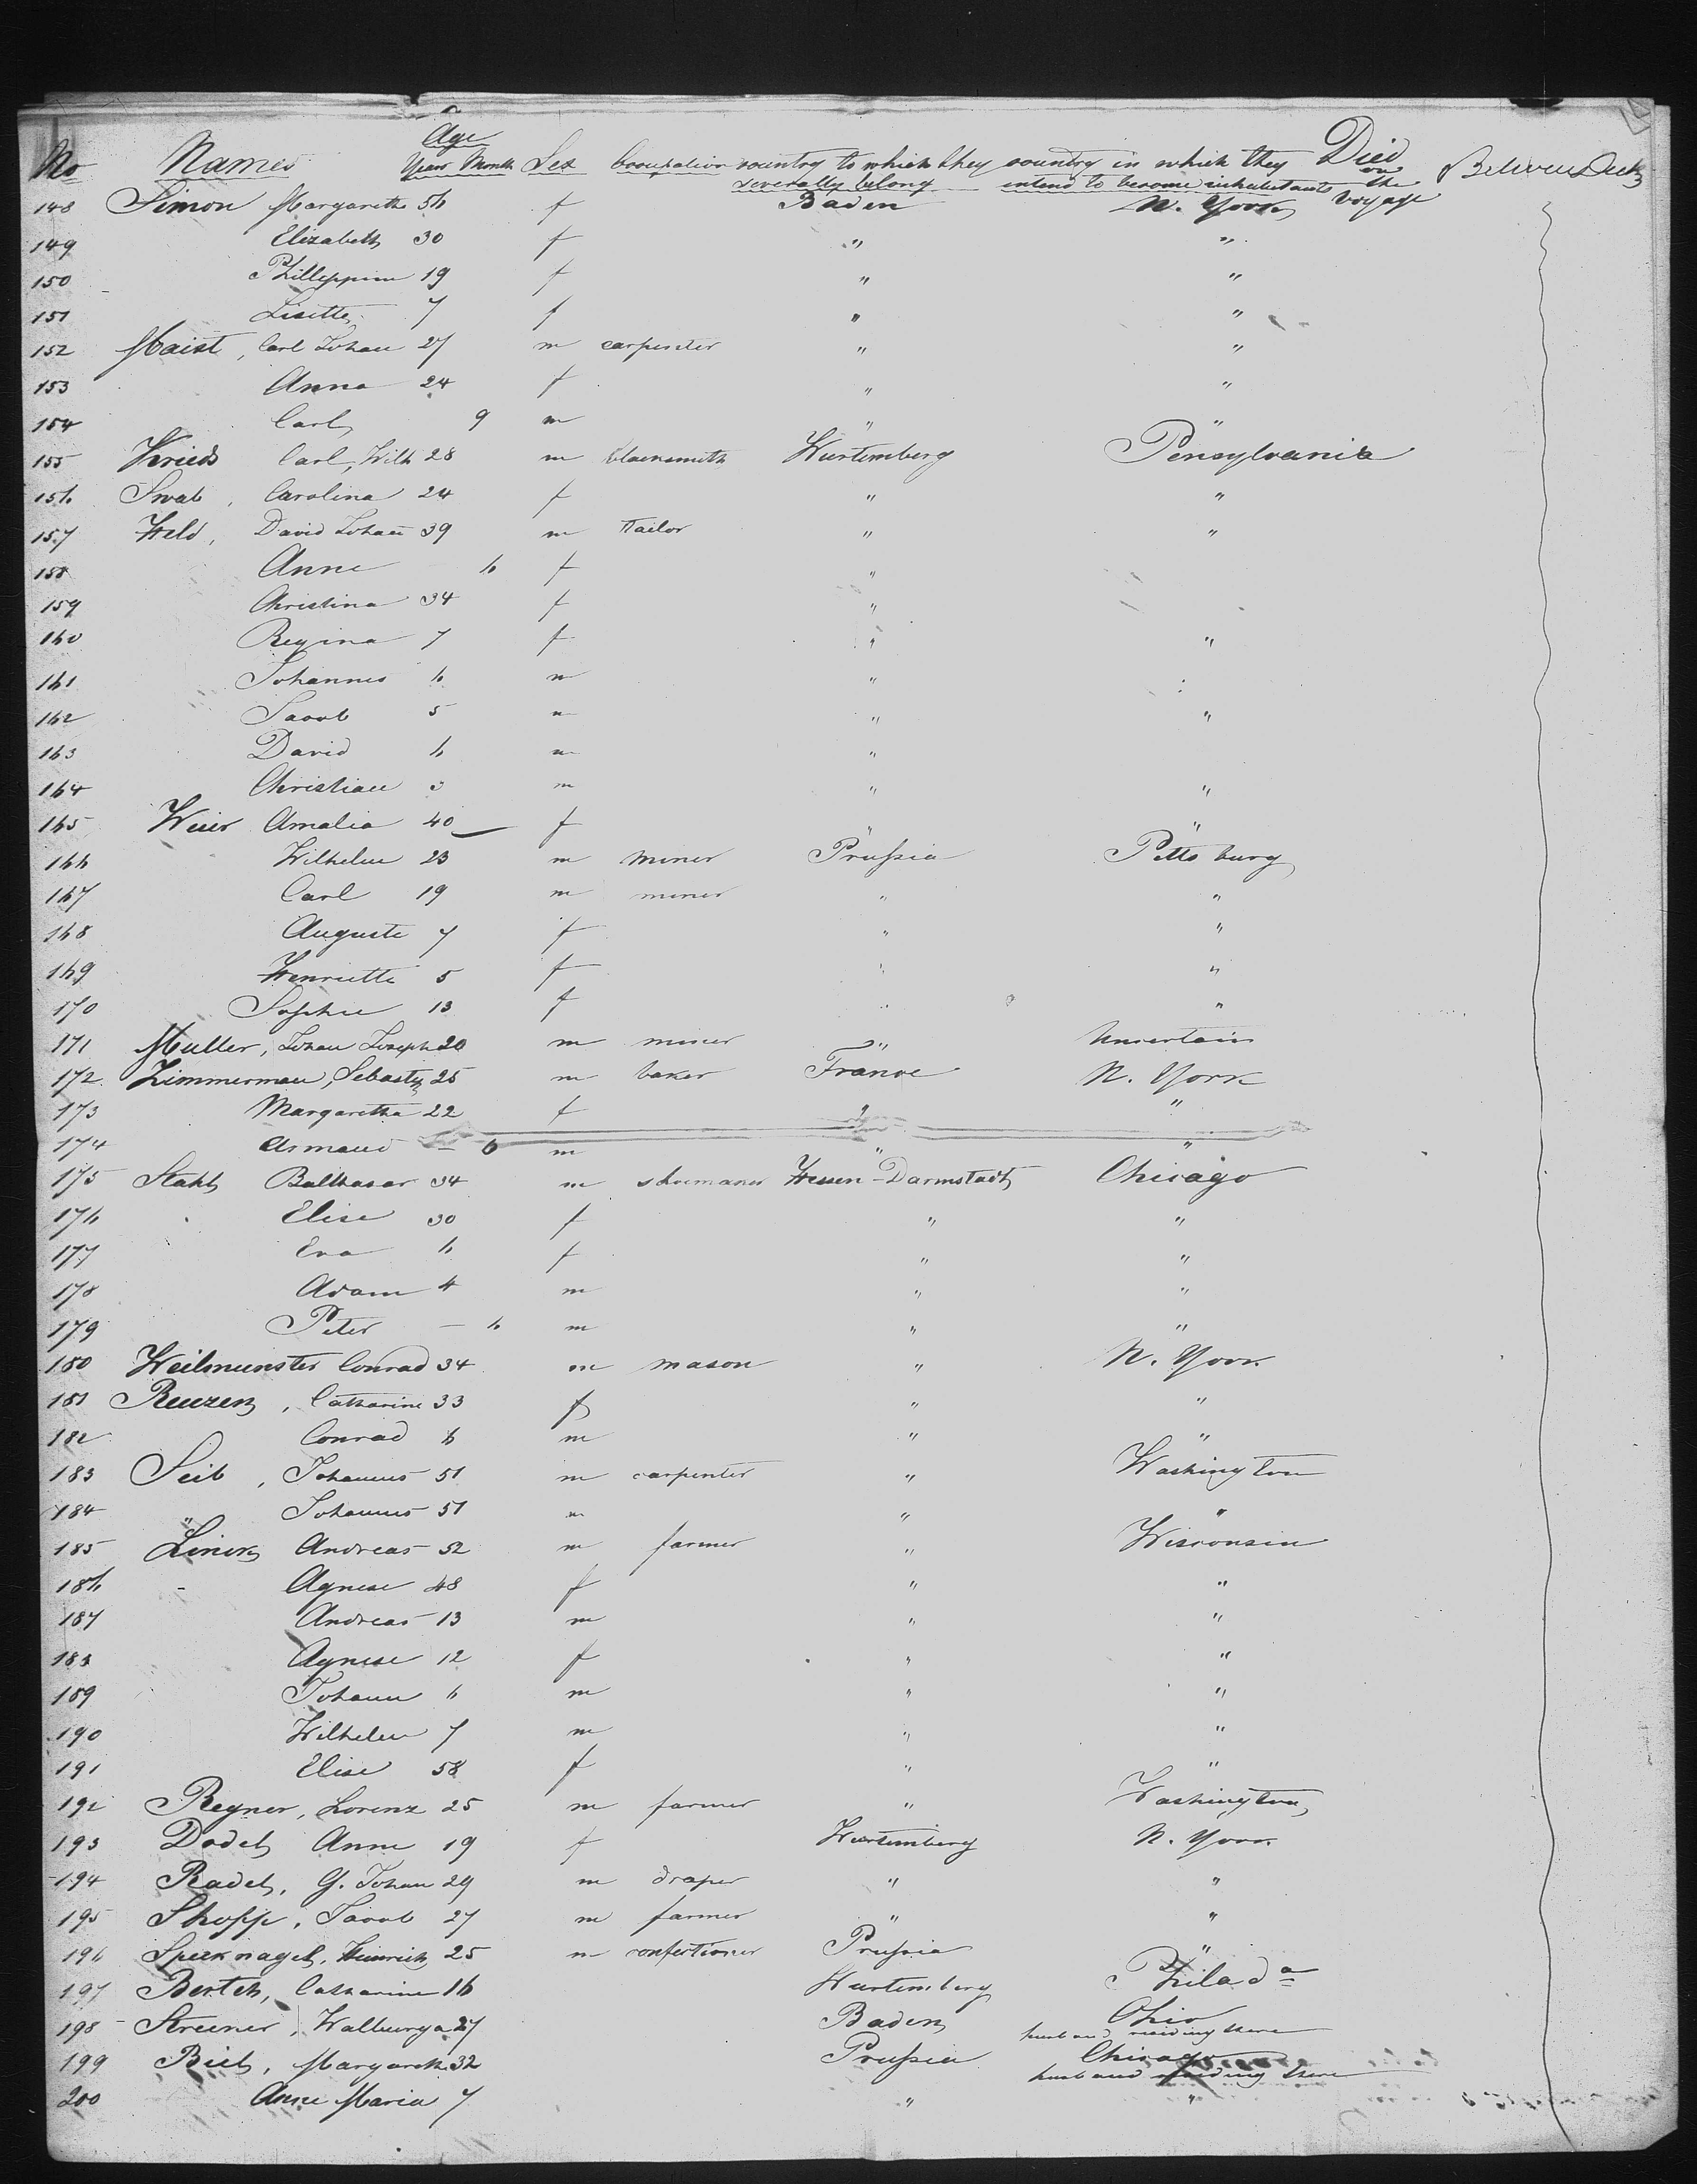 Age
No Names Years Month Sex Occupation country to which they country in which they Died
severally belong intend to become inhabitants on the voyage
148 Simon Margaretha 56 f Baden N. York
149 Elizabeth 30 f " "
150 Phillippine 19 f " "
151 Lisette 7 f " "
152 Maist, Carl Johan 27 m carpenter " "
153 Anna 24 f " "
154 Carl 9 m " "
155 Carl, Wilh 28 m blacksmith Wurtemberg Pensylvania
156 Swab, Carolina 24 f " "
157 Held, David Johan 39 m Tailor " "
158 Anne 6 f "
159 Christina 34 f "
160 Regina 7 f " "
161 Johannes 6 m " "
162 Jacob 5 m " "
163 David 6 m "
164 Christian 3 m " "
165 Weier Amalia 40 f " "
166 Wilhelm 23 m miner Prussia Pittsburg
167 Carl 19 m miner " "
168 Auguste 7 f " "
169 Henriette 5 f " "
170 Sophie 13 f " "
171 Muller, Johan Joseph 20 m miner " Uncertain
172 Zimmerman, Sebastn 25 m baker France N. York
173 Margaretha 22 f " "
174 Armand — 6 m " "
175 Stahl Balthasar 34 m shoemaker Hessen-Darmstadt Chicago
176 Elise 30 f " "
177 Eva 6 f " "
178 Adam 4 m " "
179 Peter — 6 m " "
180 Weilmunster Conrad 34 m mason " N. York
181 Catharine 33 f " "
182 Conrad 6 m " "
183 Seib, Johannes 51 m carpenter " Washington
184 " Johannes 51 m " "
185 Linck Andreas 52 m farmer " Wisconsin
186 Agnese 48 f " "
187 Andreas 13 m " "
188 Agnese 12 f " "
189 Johann 6 m " "
190 Wilhelm 7 m " "
191 Elise 58 f " "
192 Regner, Lorenz 25 m farmer " Washington
193 Dodel Anne 19 f Wurtemberg N. York
194 Radel, G. Johan 29 m draper " "
195 Shopp, Jacob 27 m farmer " "
196 Specknagel, Heinrich 25 m confectioner Prussia "
197 Catharine 16 Wurtemberg Philada
198 Walburga 27 Baden Ohio
husband residing there
199 Biel, Margareth 32 Prussia Chicago
husband residing there
200 Anne Maria 7 " "